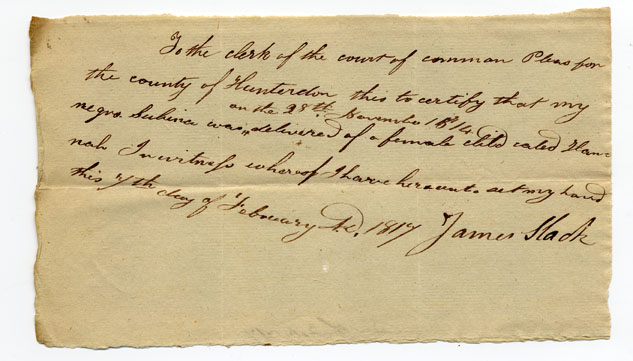 To the clerk of the court of common Pleas for
the county of Hunterdon this to certify that my
on the 28th November 1814
negro Subina was delivered of a female child caled Han
nah In witness whereof I have hereunto set my hand
this 7th day of Febouary AD. 1817 James Slack